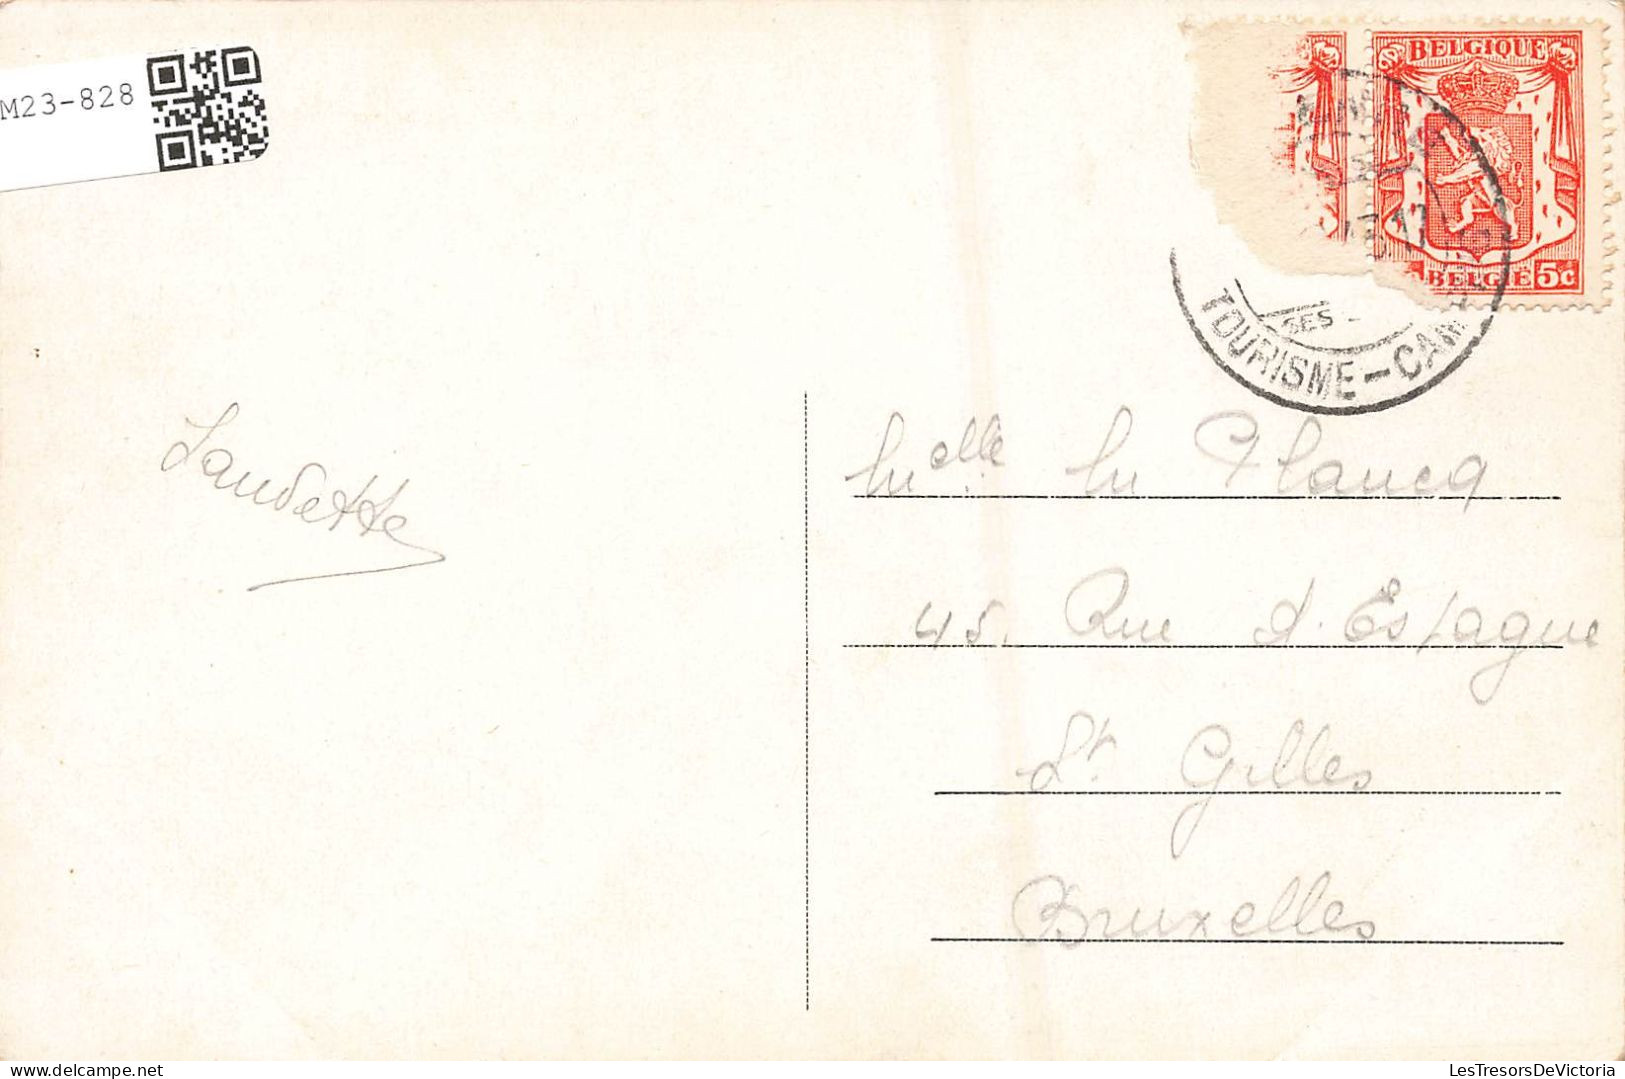 M23-828
BELGIQUE
BELGIE 5c
SES -
TOURISME - CAM
Laudette
Melle M Plancq
45, Rue d'Espagne
St. Gilles
Bruxelles
LesTresorsDeVictoria